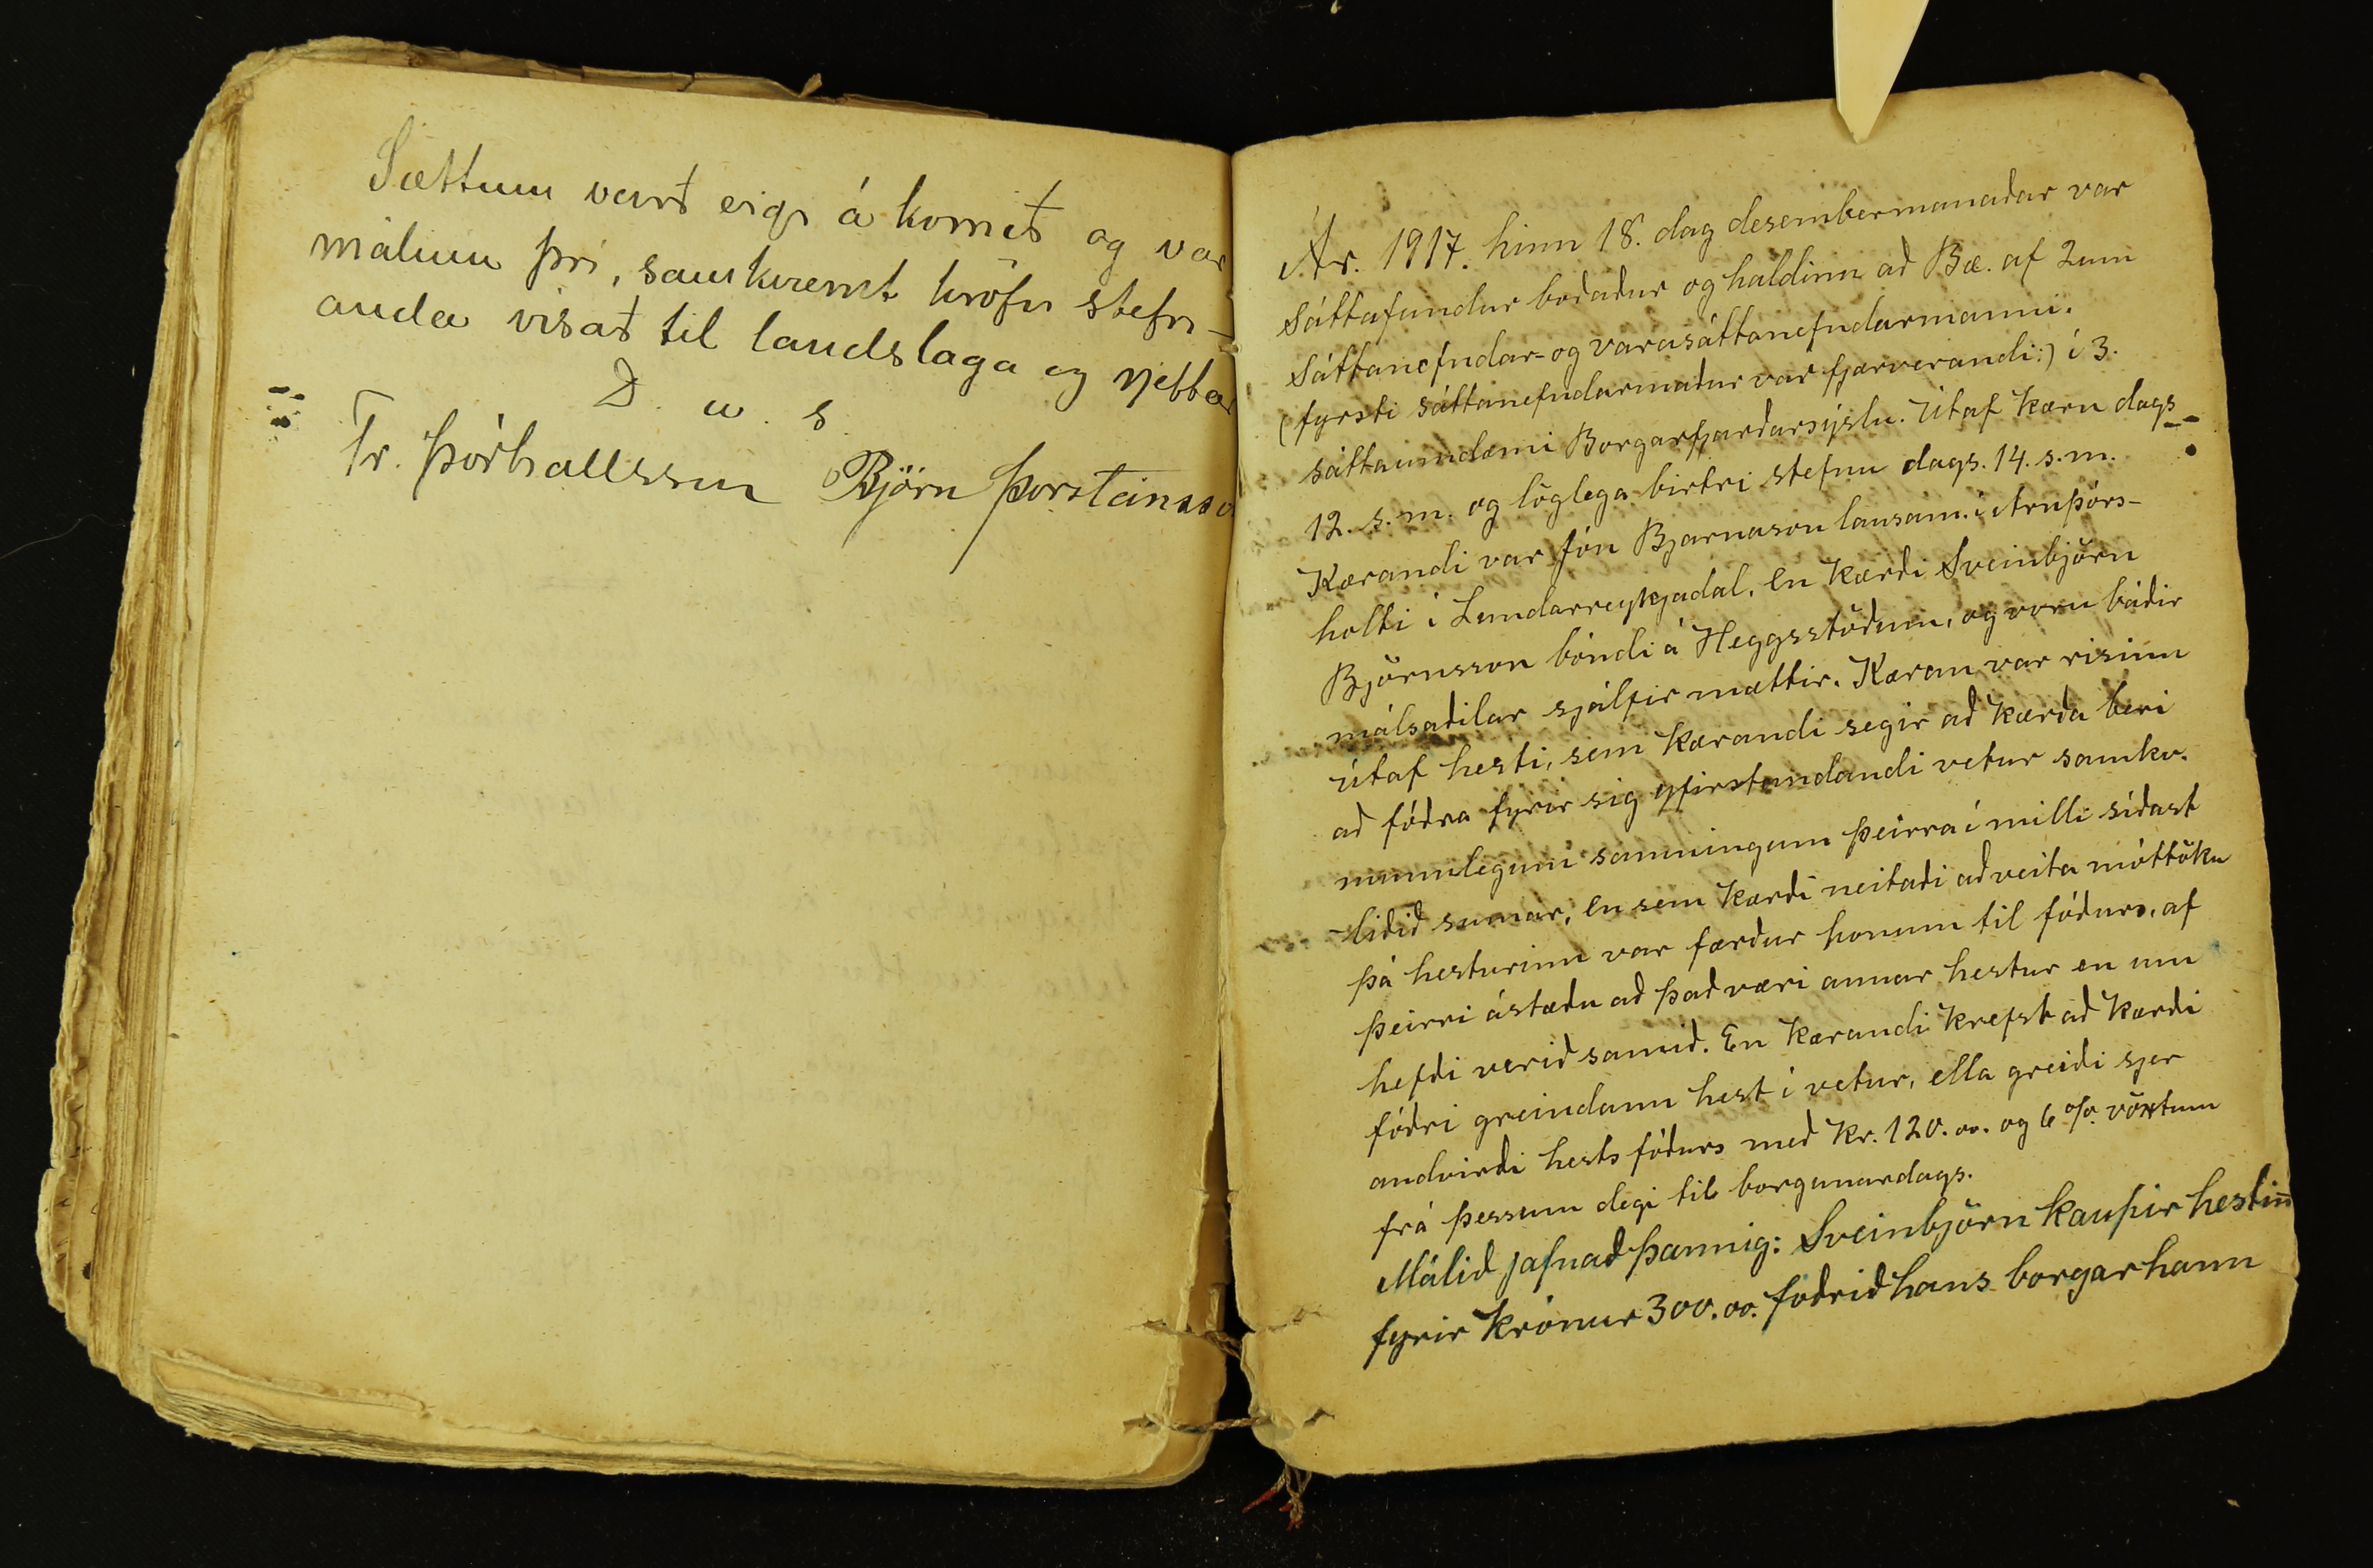 Sættum varð eigi á komið og var
málinu því, samkvæmt kröfu stefn-
anda vísað til landslaga og rjettar
D. u. s.
Tr. Þórhallsson Björn Þorsteinsson
Ár. 1917. hinn 18. dag desembermanaðar var
Sáttafundur boðaður og haldinn að Bæ. af 2um
Sáttanefndar- og varasáttanefndarmanni.
(fyrsti sáttanefndarmaður var fjærverandi:) í 3.
sáttaumdæmi Borgarfjarðarsýslu. Útaf kæru dags
12. s.m. og löglega birtri stefnu dags. 14. s.m.
Kærandi var Jón Bjarnason lausam. í Arnþórs-
holti í Lundarreykjadal, en kærði Sveinbjörn
Björnsson bóndi á Heggsstöðum, og voru báðir
málsaðilar sjálfir mættir. Kæran var risinn
útaf hesti, sem kærandi segir að kærða beri
að fóðra fyrir sig yfirstandandi vetur samkv.
munnlegum samningum þeirra í milli síðast
liðið sumar, en sem kærði neitaði að veita móttöku
þá hesturinn var færður honum til fóðurs, af
þeirri ástæðu að það væri annar hestur en um
hefði verið samið. En kærandi krefst að kærði
fóðri greindann hest í vetur, ella greiði sjer
andvirði hests fóðurs með kr. 120.00. og 6% vöxtum
frá þessum degi til borgunardags.
Málið jafnað þannig: Sveinbjörn kaupir hestin̄
fyrir krónur 300.00. foðrið hans borgar hann